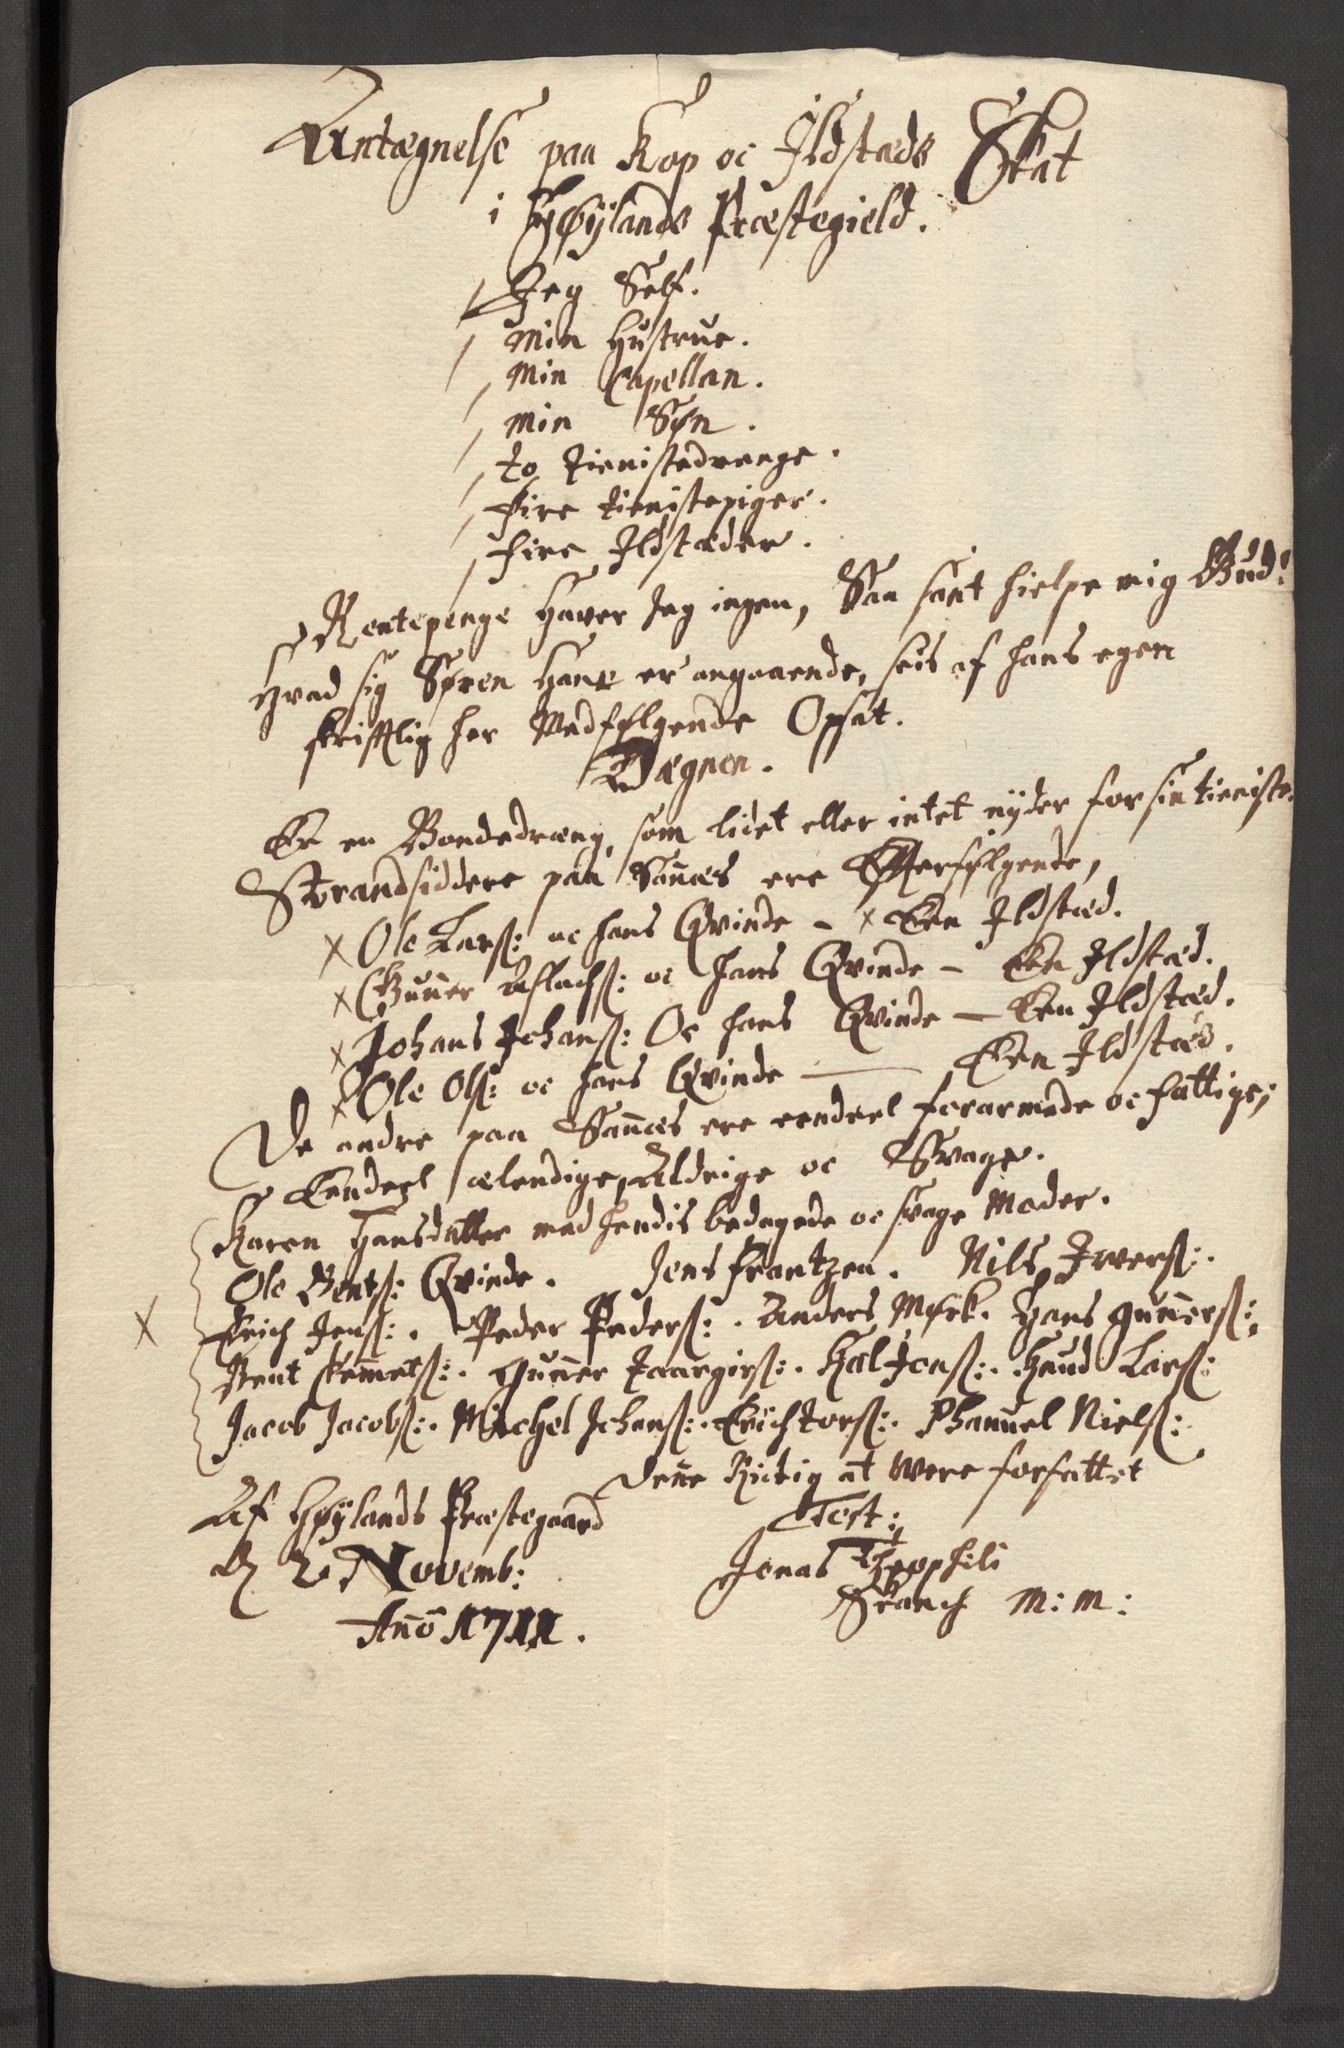 Antægnelse paa Kop oc Ildstæds Skat
i Høÿlands Præstegield.
Jeg Self.
Min Hustrue.
Min Capellan.
Min Søn.
to tienistedrenge.
fire tienistepiger.
fire Ildstæder.
Rentepenge haver Jeg ingen, Saa sant hielpe mig Gud!
Hvad sig Søren Hane er angaaende, seis af hans egen
skriftlig her Medfølgende Opsat.
Dægnen.
Er en Bondedræng, som lidet eller intet nÿder for sin tieniste.
Strandsiddere paa Sanæs ere Efterfølgende,
x Ole Lars: oc hans Qvinde - x Een Ildstæd.
x Guner Aslachs: oc hans Qvinde - Een Ildstæd.
x Johans Johans: Oc hans Qvinde - Een Ildstæd.
x Ole Ols: oc hans Qvinde - Een Ildstæd.
De andre paa Sanæs ere eendeel forarmede oc fattige,
Eendeel ælendige, Aldrige oc Svage.
Karen Hansdatter med hendis bedagede oc svage Moder.
Ole Bents: Qvinde. Jens Frantzen. Nils Ivers:.
x Erich Jens:. Peder Peders:. Anders Mørk. Hans Guners:.
Bent Semmets:. Guner Taargirs:. Kæl Jens:. Haud Lars:
Jacob Jacobs:. Michel Johans:. Erich Tors:. Phanuel Niels:
Dene Rictig at Were forfattet
Af Høÿlands Præstegaard
Test:
d 2 Novemb:
Jonas Theophili
Schanch M: M:
Ano 1711.